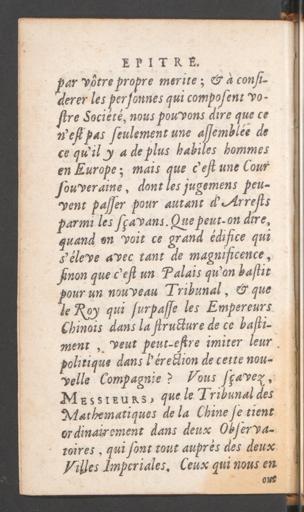 EPITRE.
par vôtre propre merite ; & à consi-
derer les personnes qui composent vo-
stre Societé, nous pouvons dire que ce
n'est pas seulement une assemblée de
ce qu'il y a de plus habiles hommes
en Europe ; mais que c'est une Cour
souveraine, dont les jugemens peu-
vent passer pour autant d'Arrests
parmi les sçavans. Que peut-on dire,
quand on voit ce grand édifice qui
s'éleve avec tant de magnificence,
sinon que c'est un Palais qu'on bastit
pour un nouveau Tribunal, & que
le Roy qui surpasse les Empereurs
Chinois dans la structure de ce basti-
ment, veut peut-estre imiter leur
politique dans l'érection de cette nou-
velle Compagnie ? Vous sçavez,
MESSIEURS, que le Tribunal des
Mathematiques de la Chine se tient
ordinairement dans deux Observa-
toires, qui sont tout auprés des deux
Villes Imperiales. Ceux qui nous en
ont